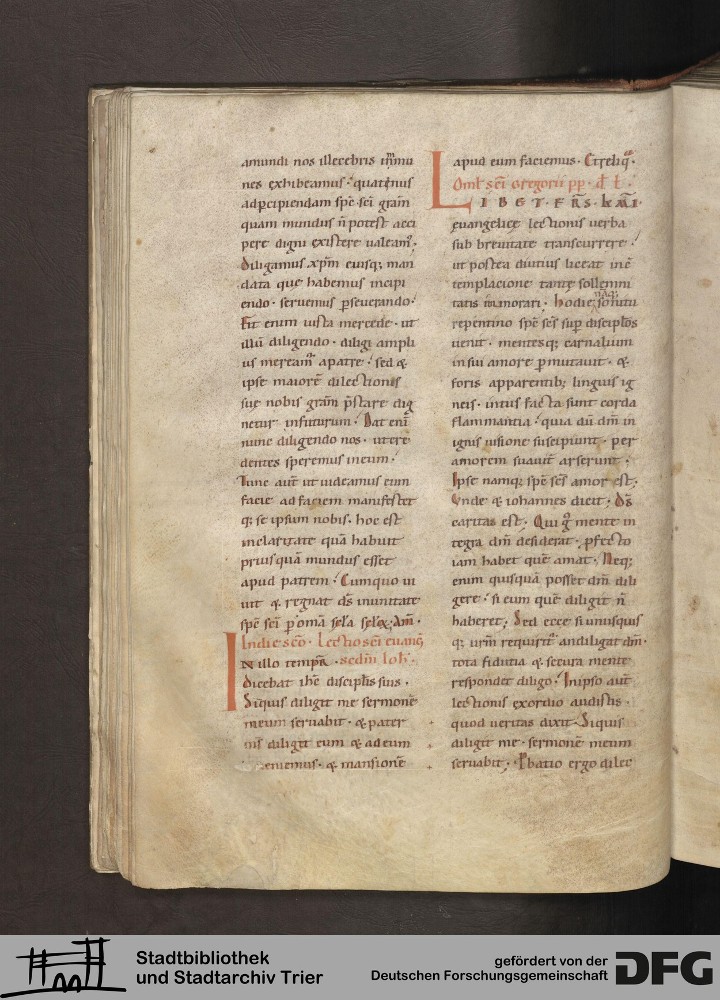 amundi nos illecebris im̅mu
nes exhibeamus · quatenus
ad p̱cipiendam sp̅e sc̅i gr̅am
quam mundus n̅ potest acci
pere digni existere ualeam᷒.
Diligamus xp̅m eiusq; man
data que habemus incipi
endo · seruemus p̱seuerando.
Fit enim iusta mercede · ut
illu̅ diligendo · diligi ampli
us meream᷒ apatre · sed &
ipse maiore̅ dilectionis
sue nobis gr̅am p̅stare dig
netur infuturum · Dat eni̅
nunc diligendo nos · ut cre
dentes speremus ineum ·
Tunc aut̅ ut uideamus eum
facie adfaciem manifestet
q; se ipsum nobis · hoc est
inclaritate qua̅ habuit
priusqua̅ mundus esset
apud patrem · Cumquo ui
uit & regnat d̅s inunitate
sp̅c sc̅i p̱ om̅a sc̅la sc̅lo̅ꝝ; Am̅ ·
In die sc̅o · Lectio sc̅i euang̅
IN illo tempr̅ · scd̅m Ioh̅ ·
dicebat ihc̅ discipl̅is suis ·
Siquis diligit me sermone̅
meum seruabit · & pater
m̅s diligit eum & ad eum
ueniemus · & mansione̅
apud eum faciemus · Et reliq̅ ·
Oml̅ sc̅i Gregorii pp̅ · d̅ l̅ ·
LIBET · FR̅S · KM̅I ·
euangelice lectionis uerba
sub breuitate transcurrere ·
ut postea diutius liceat in c̅
templacione tante sollemni
tatis inmorari · hodie namq; sonitu
repentino sp̅c sc̅s sup̱ discipl̅os
uenit · mentesq; carnalium
in sui amore p̱mutauit · &
foris apparentib; linguis ig
neis · intus facta sunt corda
flammantia · quia du̅ dm̅ in
ignis uisione suscipiunt · per
amorem suauit̅ arserunt ·
Ipse namq; sp̅c sc̅s amor est;
Vnde & iohannes dicit · D̅s
caritas est · Qui g̊ mente in
tegra dm̅ desiderat · p̱fecto
iam habet que̅ amat · Neq;
enim quisqua̅ posset dm̅ dili
gere · si eum que̅ diligit n̅
haberet; Sed ecce si unusquis
q; ur̅m requirit᷒ an diligat dm̅ ·
tota fidutia & secura mente
respondet diligo · In ipso aut̅
lectionis exordio audistis ·
quod ueritas dixit · Siquis
diligit me · sermone̅ meum
seruabit; · P̱batio ergo dilec
Stadtbibliothek
und Stadtarchiv Trier
gefördert von der
Deutschen Forschungsgemeinschaft
DFG